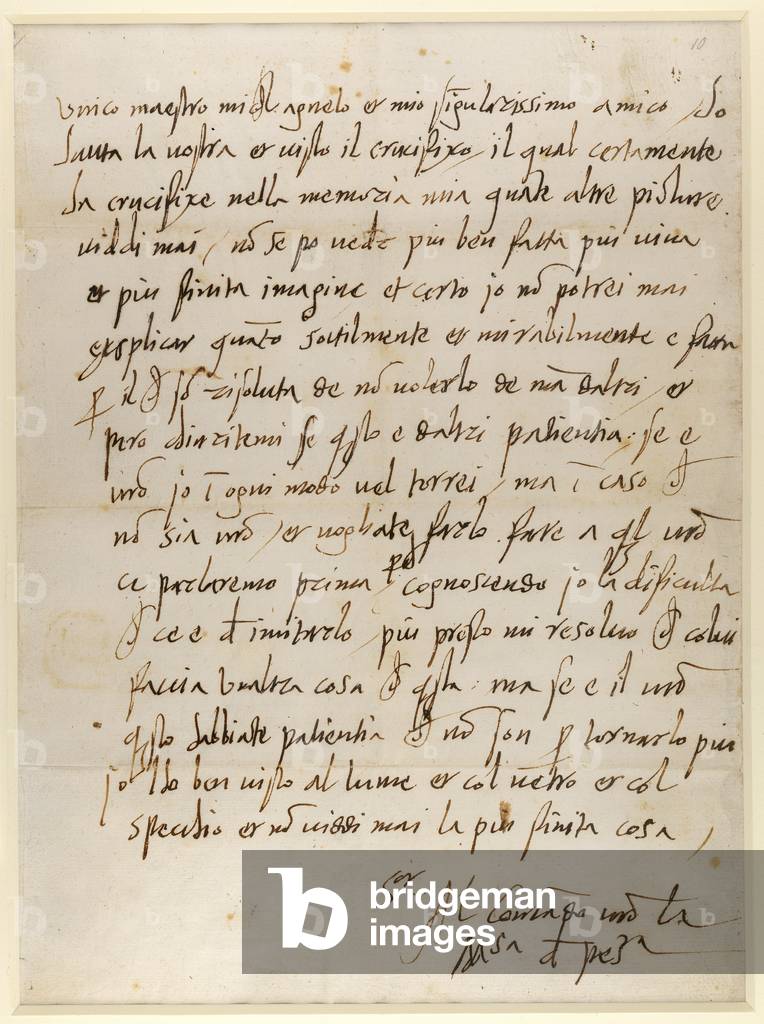 10
Unico maestro michelagnelo et mio sĩgularissimo amico / Ho
hauta la vostra et visto il crucifixo / il qual certamente
ha crucifixe nella memoria mia quate altre picture
viddi mai / nõ se po vede piu ben fatta piu viva
et piu finita imagine et certo jo nõ potrei mai
explicar quãto sottilmente et mirabilmente e fatta
p il ch sõ risoluta de nõ volerlo de mã daltri / et
pero chiaritemi se qsto e daltri patientia : se e
vrõ jo ĩ ogni modo vel torrei / ma ĩ caso ch
nõ sia vrõ / et vogliate farlo fare a ql vrõ
ci parlaremo prima / pche cognoscendo jo la dificulta
ch ce e d imitarlo / piu presto mi resolvo ch colui
faccia unaltra cosa ch qsta : ma se e il vrõ
qsto habbiate patientia ch nõ son p tornarlo piu
jo lho ben visto al lume et col vetro et col
specchio et nõ viddi mai la piu finita cosa /
Al comãdo vrõ la
d pesra
b
bridgeman
images